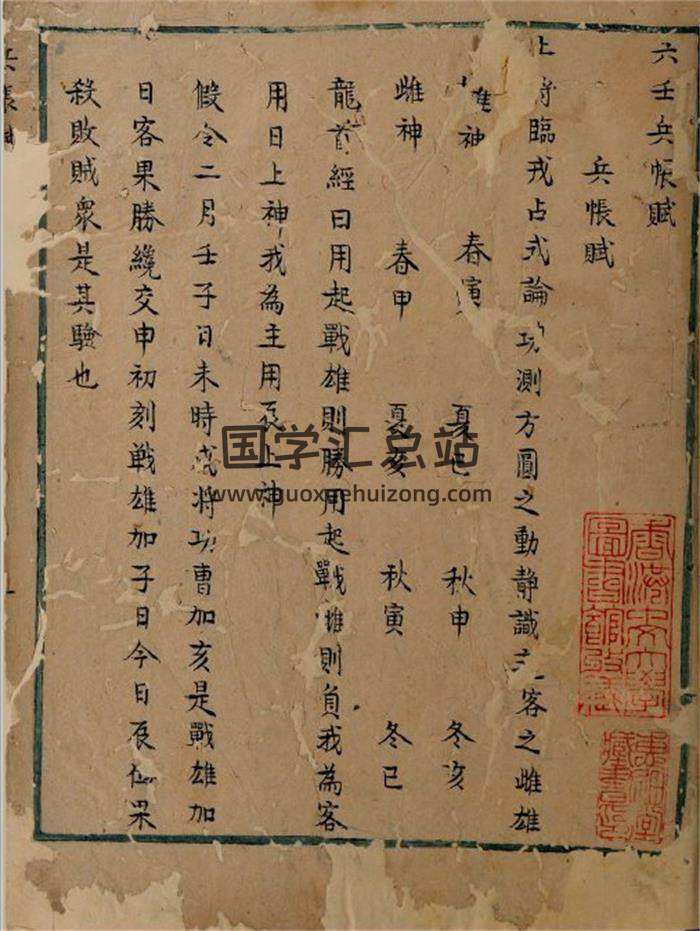 六壬兵帳賦
兵帳賦
將臨戎占式論攻測方圓之動静識主客之雌雄
雄神 春寅 夏巳 秋申 冬亥
雌神 春甲 夏亥 秋寅 冬巳
龍首經曰用起戰雄則勝用起戰雌則負我為客
用日上神我為主用辰上神
假令二月壬子日未時戌将功曹加亥是戰雄加
日客果勝纔交申初刻戰雄加子日今日辰仙果
殺敗賊衆是其驗也
兵帳
香港中文大學
圖書館藏
國学汇总站
www.guoxuehuizong.com